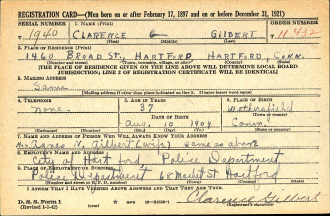 REGISTRATION CARD—(Men born on or after February 17, 1897 and on or before December 31, 1921)
SERIAL NUMBER 1. NAME (Print) ORDER NUMBER
1940 CLARENCE G GILBERT 11,432
(First) (Middle) (Last)
2. PLACE OF RESIDENCE (Print)
1460 BROAD ST, HARTFORD HARTFORD, CONN.
(Number and street) (Town, township, village, or city) (County) (State)
[THE PLACE OF RESIDENCE GIVEN ON THE LINE ABOVE WILL DETERMINE LOCAL BOARD
JURISDICTION; LINE 2 OF REGISTRATION CERTIFICATE WILL BE IDENTICAL]
3. MAILING ADDRESS
Same
4. TELEPHONE 5. AGE IN YEARS 6. PLACE OF BIRTH
37 Wethersfield
none. DATE OF BIRTH
Aug. 10 1904 Conn.
7. NAME AND ADDRESS OF PERSON WHO WILL ALWAYS KNOW YOUR ADDRESS
Mrs Agnes Gilbert (wife) same as above
8. EMPLOYER'S NAME AND ADDRESS
City of Hartford Police Department
9. PLACE OF EMPLOYMENT OR BUSINESS
Police Department Market St Hartford
I AFFIRM THAT I HAVE VERIFIED ABOVE ANSWERS AND THAT THEY ARE TRUE.
D. S. S. Form 1
(Revised 1-1-42) Clarence Gilbert